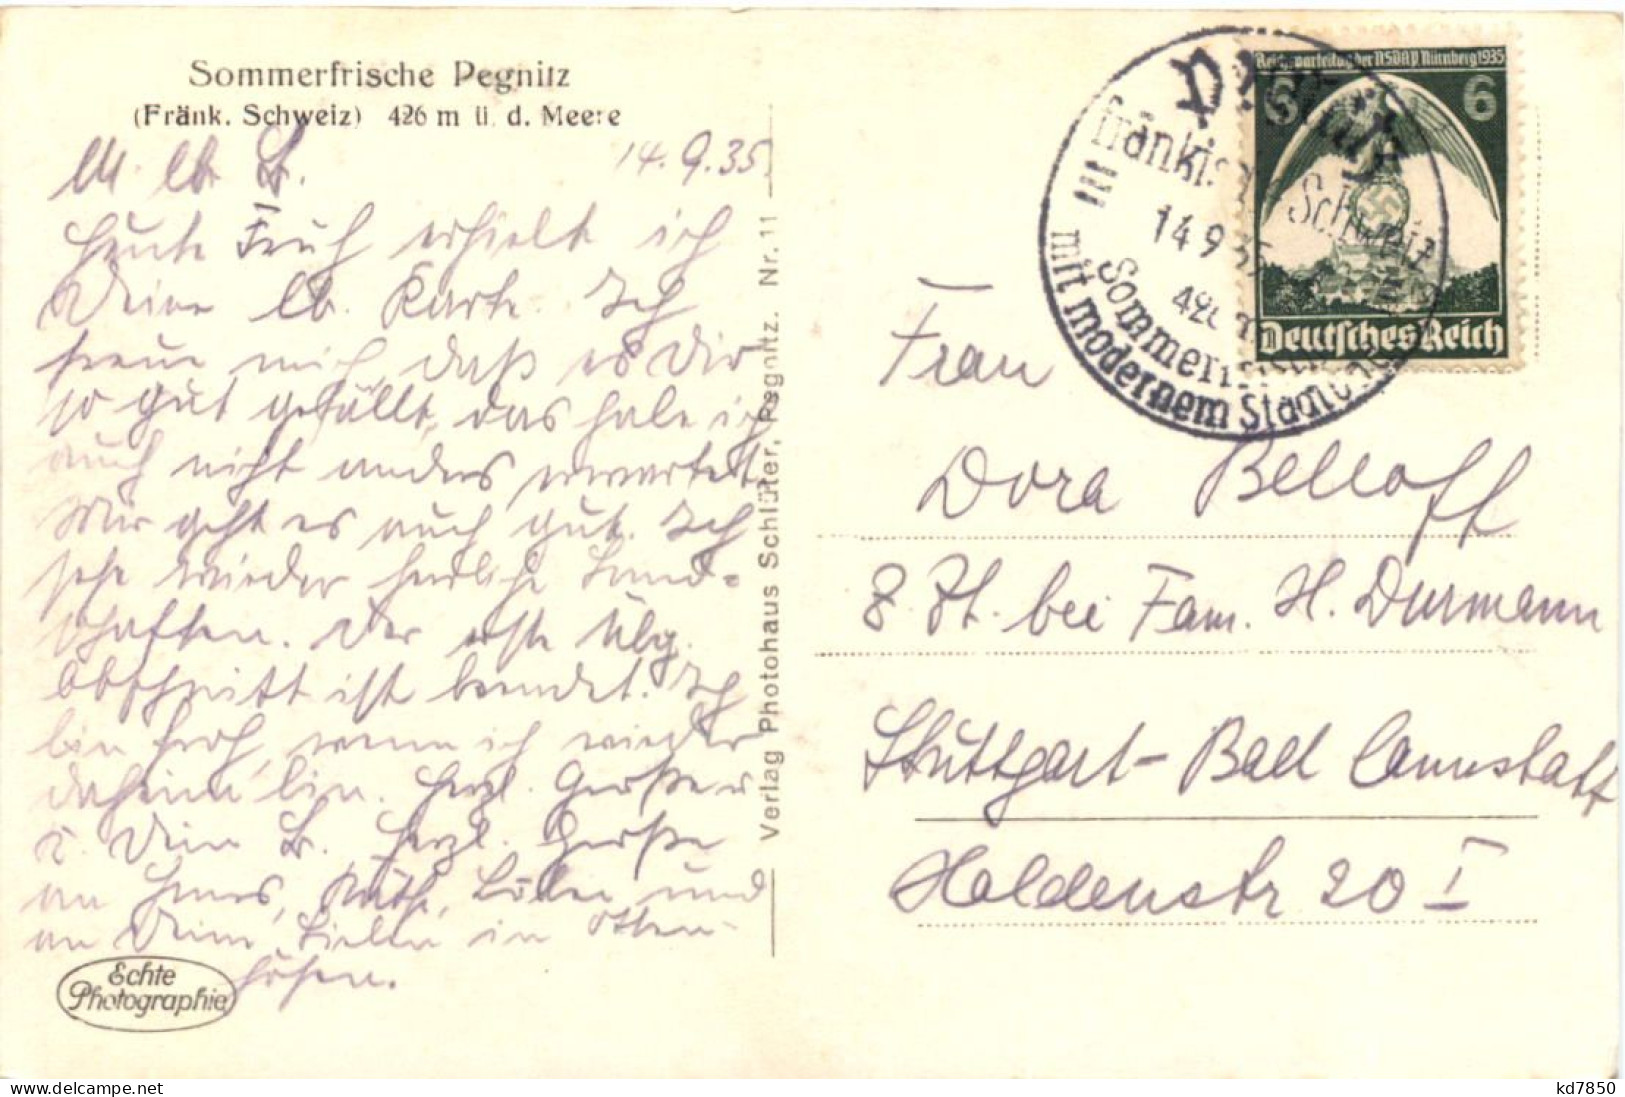 Sommerfrische Pegnitz
(Fränk. Schweiz) 426 m ü. d. Meere
14.9.35.
M. lb. D.
Heute Früh erhielt ich
Deine lb. Karte. Ich
freue mich, daß es Dir
so gut gefällt, das habe ich
auch nicht anders erwartet.
Mir geht es auch gut. Ich
sehe wieder herrliche Land-
schaften. Der erste Übg.
Abschnitt ist beendet. Ich
bin froh, wenn ich wieder
daheim bin. Herzl. Grüße
Dein Herzl. Grüße
an und
an Deine in Otten-
höfen.
Echte
Photographie
Verlag Photohaus Schlüter, Pegnitz. Nr. 11
Pegnitz
Fränkische Schweiz
14 9 35
426 m
Sommerfrische
mit modernem
Reichsparteitag der NSDAP Nürnberg 1935
6 6
Deutsches Reich
Frau
Dora Belloff
z. Zt. bei Fam. H. Durmann
Stuttgart-Bad Cannstatt
Haldenstr 20 I
kd7850